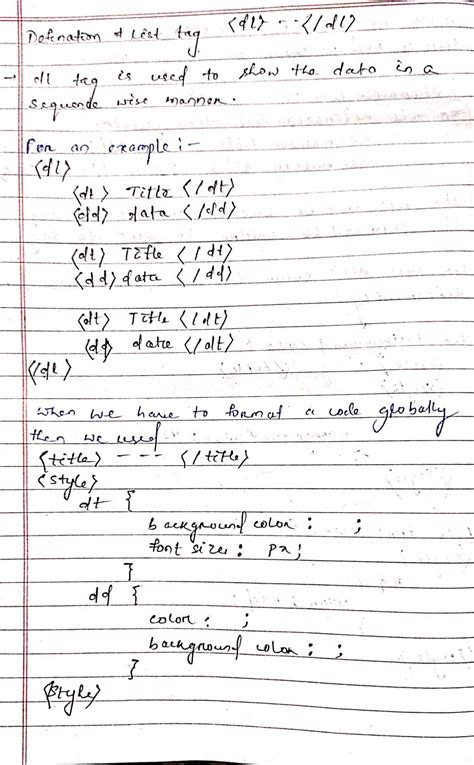 Defination of List tag <dl> --- </dl>
→ dl tag is used to show the data in a
sequence wise manner.
For an example :-
<dl>
<dt> Title </dt>
<dd> data </dd>
<dt> Title </dt>
<dd> data </dd>
<dt> Title </dt>
<dd> data </dt>
</dl>
when we have to format a code globally
then we used
<title> --- </title>
<style>
dt {
background color : ;
font size : px;
}
dd {
color : ;
background color : ;
}
<style>